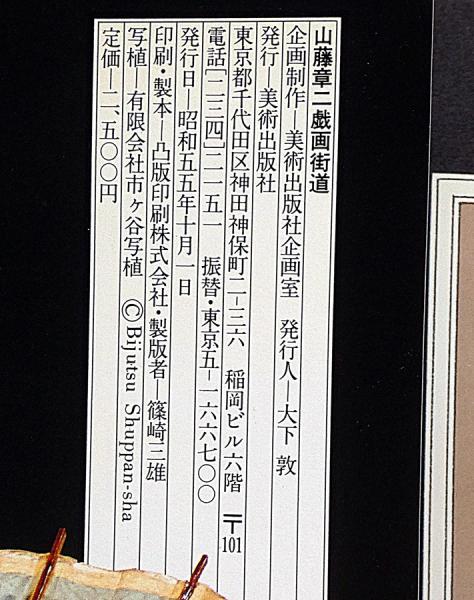 山藤章二戯画街道
企画制作―美術出版社企画室　発行人―大下 敦
発行―美術出版社
東京都千代田区神田神保町二−三六　稲岡ビル六階　〒101
電話[二三四]二一五一　振替・東京五−一六六七〇〇
発行日―昭和五五年十月一日
印刷・製本―凸版印刷株式会社・製版者　篠崎三雄
写植―有限会社市ヶ谷写植　©Bijutsu Shuppan-sha
定価―二、五〇〇円